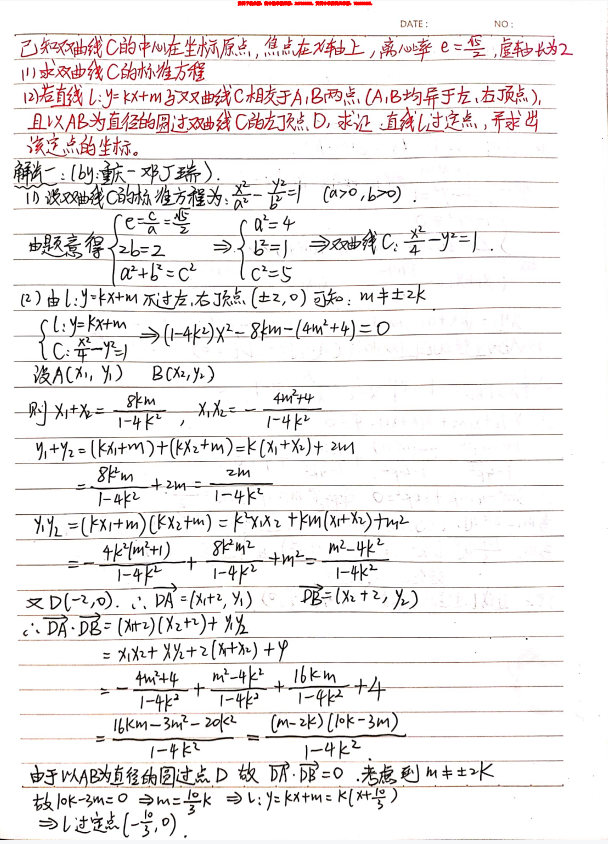 DATE: NO:
已知双曲线C的中心在坐标原点,焦点在x轴上,离心率 e=√5/2,虚轴长为2
(1)求双曲线C的标准方程
(2)若直线 l:y=kx+m与双曲线C相交于A,B两点(A,B均异于左、右顶点),
且以AB为直径的圆过双曲线C的左顶点D,求证:直线l过定点,并求出
该定点的坐标。
解法一:(by:重庆-邓丁瑞).
(1)设双曲线C的标准方程为:x²/a²-y²/b²=1 (a>0,b>0).
由题意得{e=c/a=√5/2 2b=2 a²+b²=c² ⇒{a²=4 b²=1 c²=5 ⇒双曲线C:x²/4-y²=1.
(2)由l:y=kx+m不过左,右顶点(±2,0)可知:m≠±2k
{l:y=kx+m C:x²/4-y²=1 ⇒(1-4k²)x²-8km-(4m²+4)=0
设A(x₁,y₁) B(x₂,y₂)
则x₁+x₂=8km/(1-4k²),x₁x₂=-(4m²+4)/(1-4k²)
y₁+y₂=(kx₁+m)+(kx₂+m)=k(x₁+x₂)+2m
=8k²m/(1-4k²)+2m=2m/(1-4k²)
y₁y₂=(kx₁+m)(kx₂+m)=k²x₁x₂+km(x₁+x₂)+m²
=-4k²(m²+1)/(1-4k²)+8k²m²/(1-4k²)+m²=(m²-4k²)/(1-4k²)
又D(-2,0).∴DA=(x₁+2,y₁) DB=(x₂+2,y₂)
∴DA·DB=(x₁+2)(x₂+2)+y₁y₂
=x₁x₂+y₁y₂+2(x₁+x₂)+4
=-(4m²+4)/(1-4k²)+(m²-4k²)/(1-4k²)+16km/(1-4k²)+4
=(16km-3m²-20k²)/(1-4k²)=(m-2k)(10k-3m)/(1-4k²).
由于以AB为直径的圆过点D 故 DA·DB=0.考虑到m≠±2k
故10k-3m=0 ⇒m=10/3k ⇒l:y=kx+m=k(x+10/3)
⇒l过定点(-10/3,0).